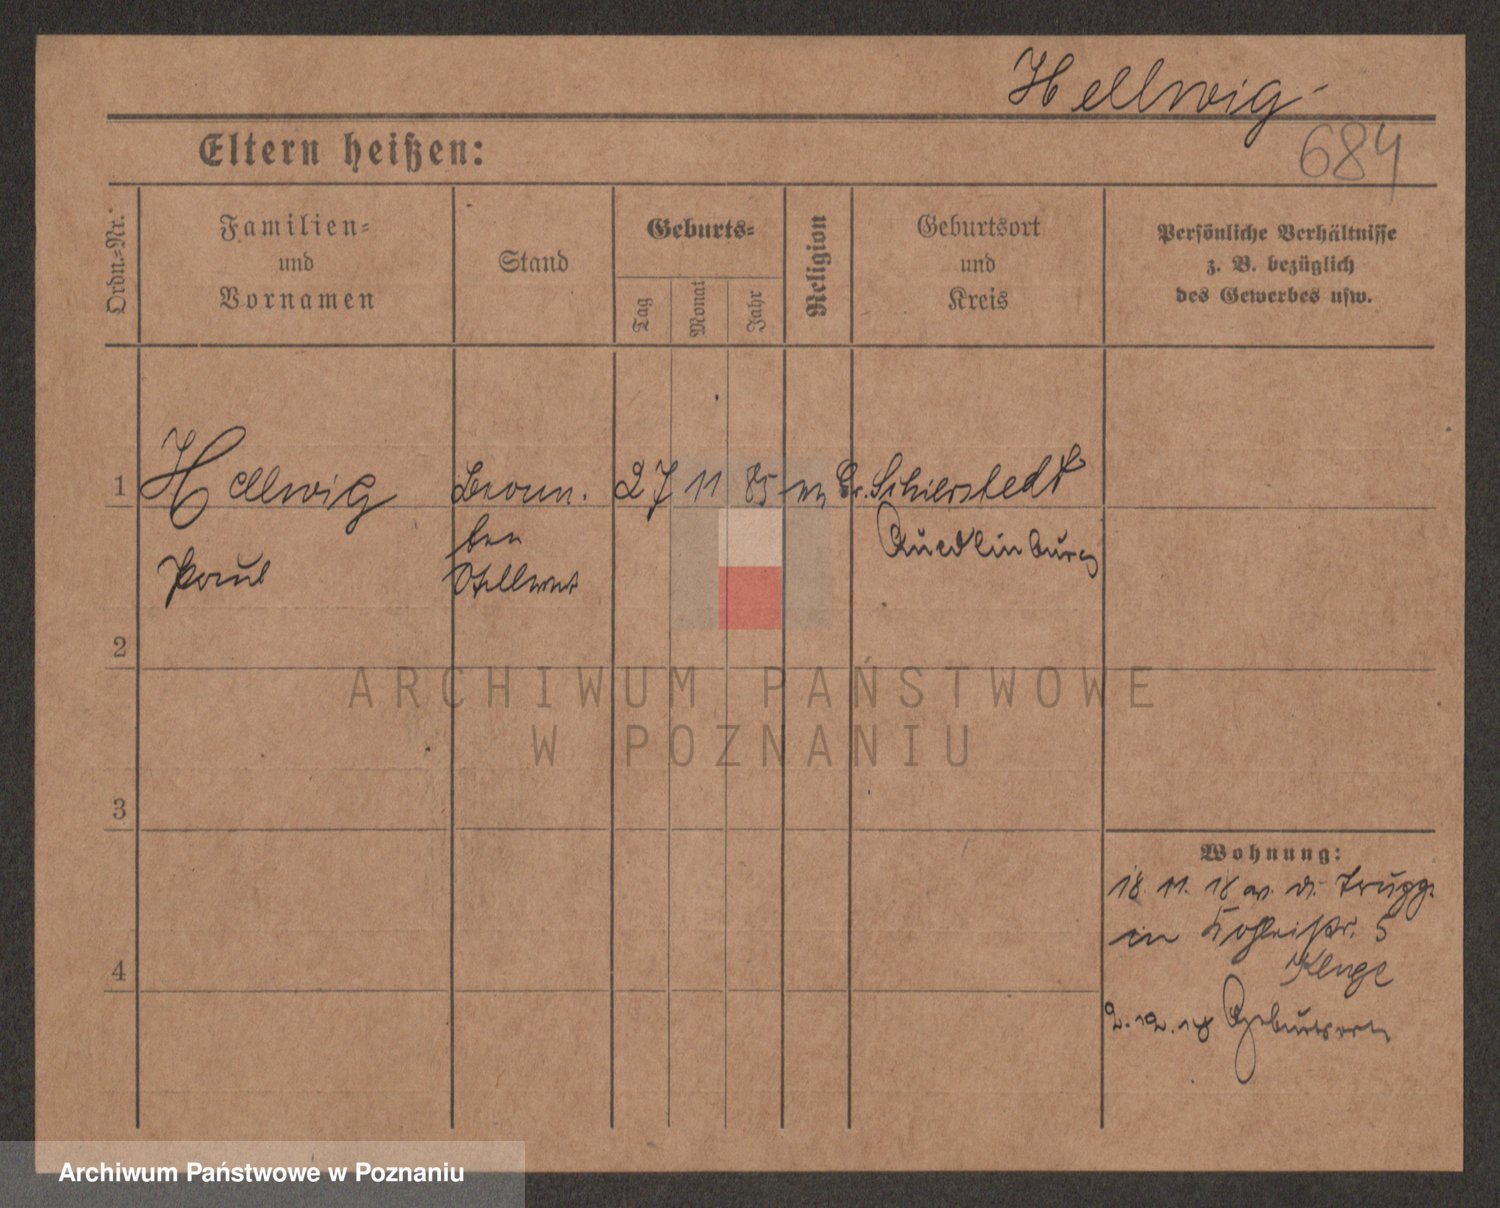 Hellwig
684
Eltern heißen:
Ordn.-Nr.
Familien-
und
Vornamen
Stand
Geburts-
Tag
Monat
Jahr
Religion
Geburtsort
und
Kreis
Persönliche Verhältnisse
z. B. bezüglich
des Gewerbes usw.
1 Hellwig 27 11 85 Gr. Schierstedt
Quedlinburg
Paul
2
3
4
Wohnung:
18 11. 18 v. d. Trupp.
in 5
Kluge
2. 12. 18 Geburtsort
ARCHIWUM PAŃSTWOWE
W POZNANIU
Archiwum Państwowe w Poznaniu